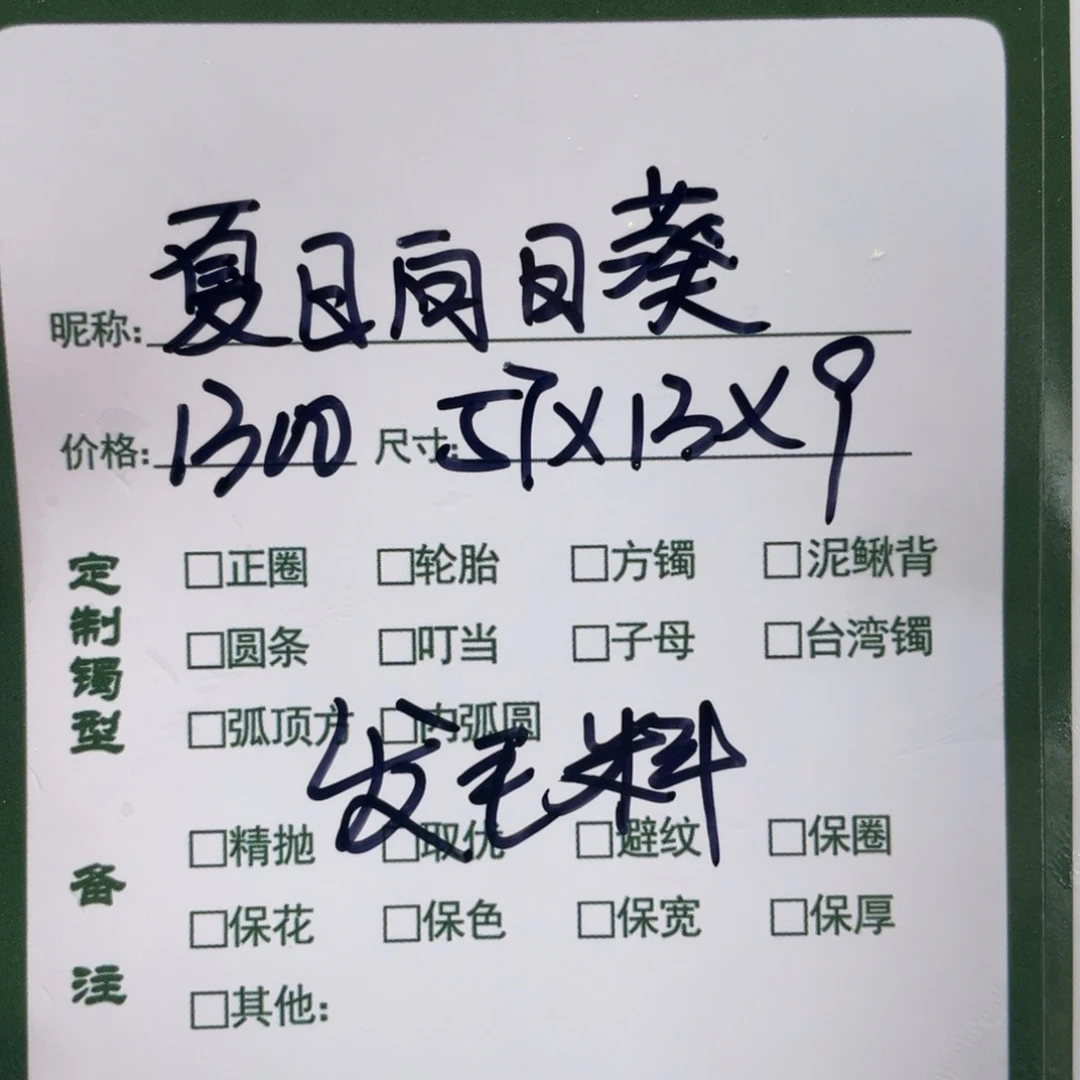 昵称: 夏日向日葵
价格: 1300 尺寸: 57X13X9
定制镯型
□正圈 □轮胎 □方镯 □泥鳅背
□圆条 □叮当 □子母 □台湾镯
□弧顶方 □内弧圆
发毛料
备注
□精抛 □取优 □避纹 □保圈
□保花 □保色 □保宽 □保厚
□其他: